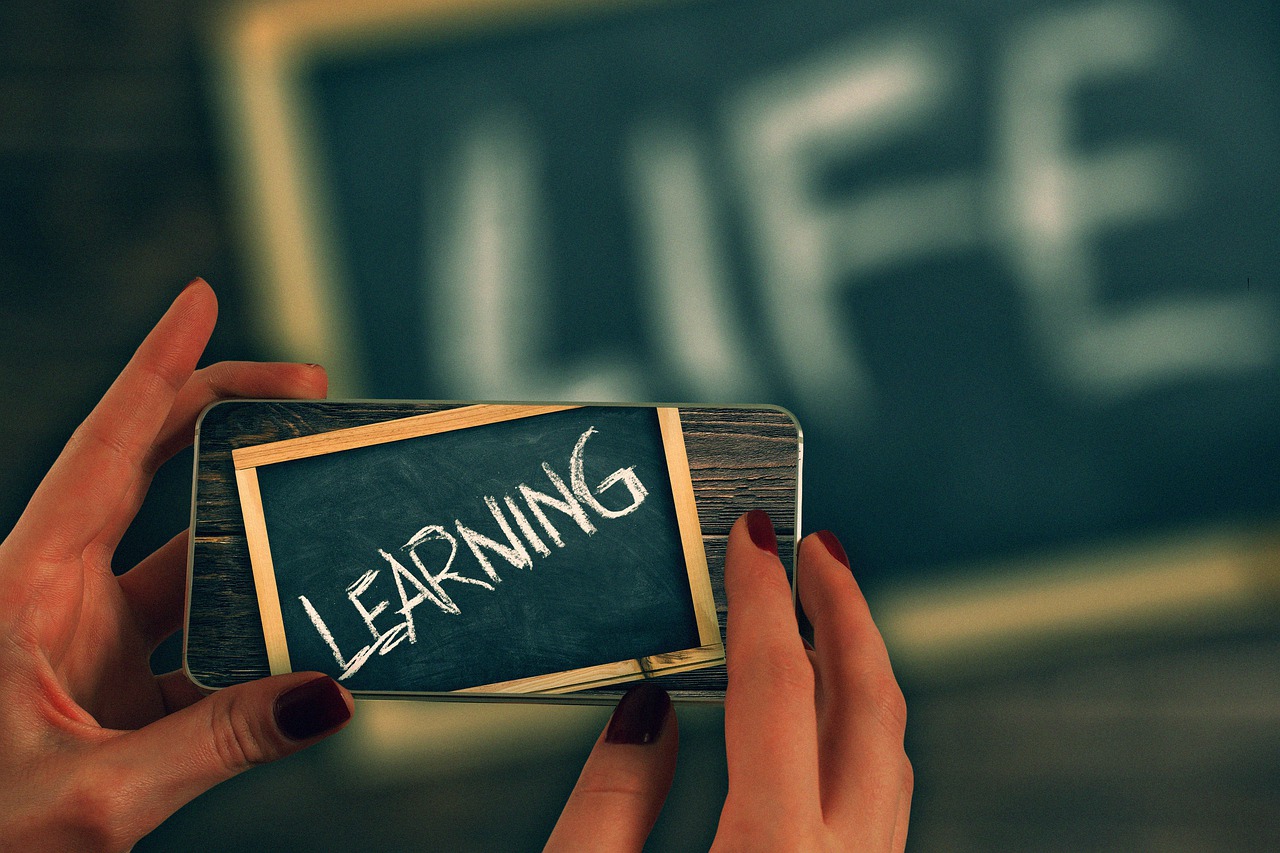 LIFE
LEARNING